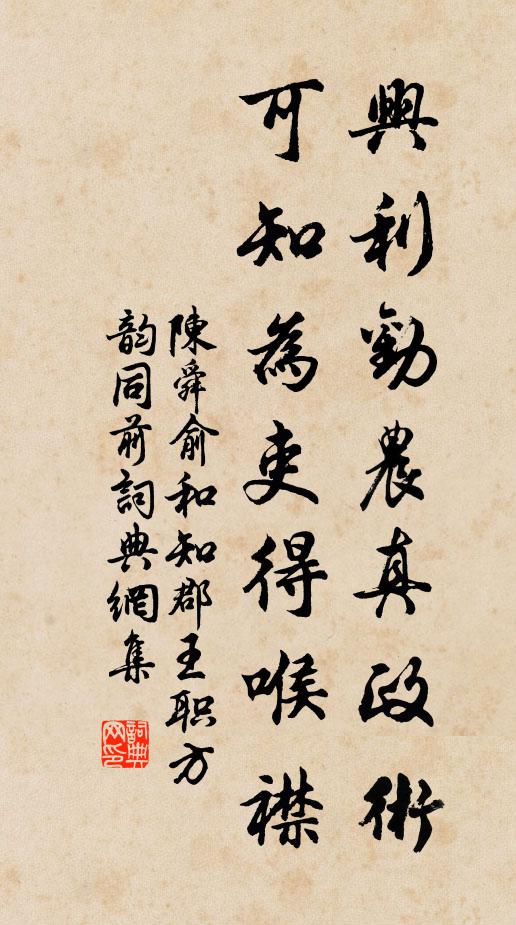 興利勸農真政術
可知為吏得喉襟
陳舜俞和知郡王职方
韵同前詞典網集
詞典網印